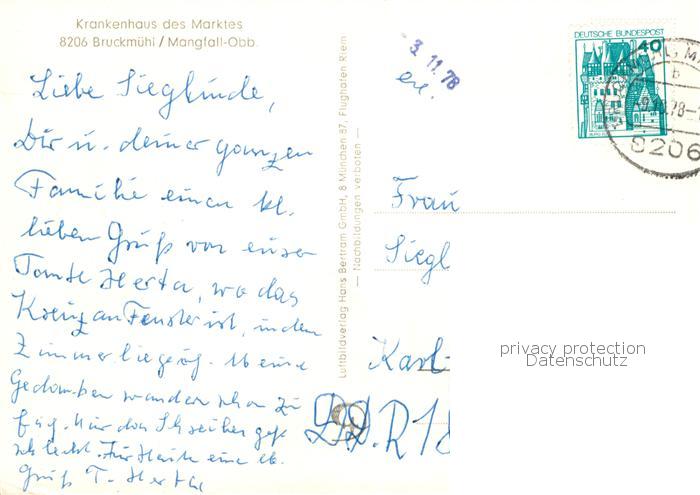 Krankenhaus des Marktes
8206 Bruckmühl / Mangfall-Obb.
Liebe Sieglinde,
Dir u. deiner ganzen
Familie einen kl.
lieben Gruß von eurer
Tante Herta, wo das
Kreuz an Fenster ist, in dem
Zimmer liege ich. Meine
Gedanken wandern schon zu
Euch. Nur das Schreiben geht
schlecht. Für Heute eine lb.
Gruß T. Herta
Luftbildverlag Hans Bertram GmbH, 8 München 87, Flughafen Riem
— Nachbildungen verboten —
3. 11. 78
DEUTSCHE BUNDESPOST
40
78
8206
Frau
Siegl
Karl-
DDR
privacy protection
Datenschutz